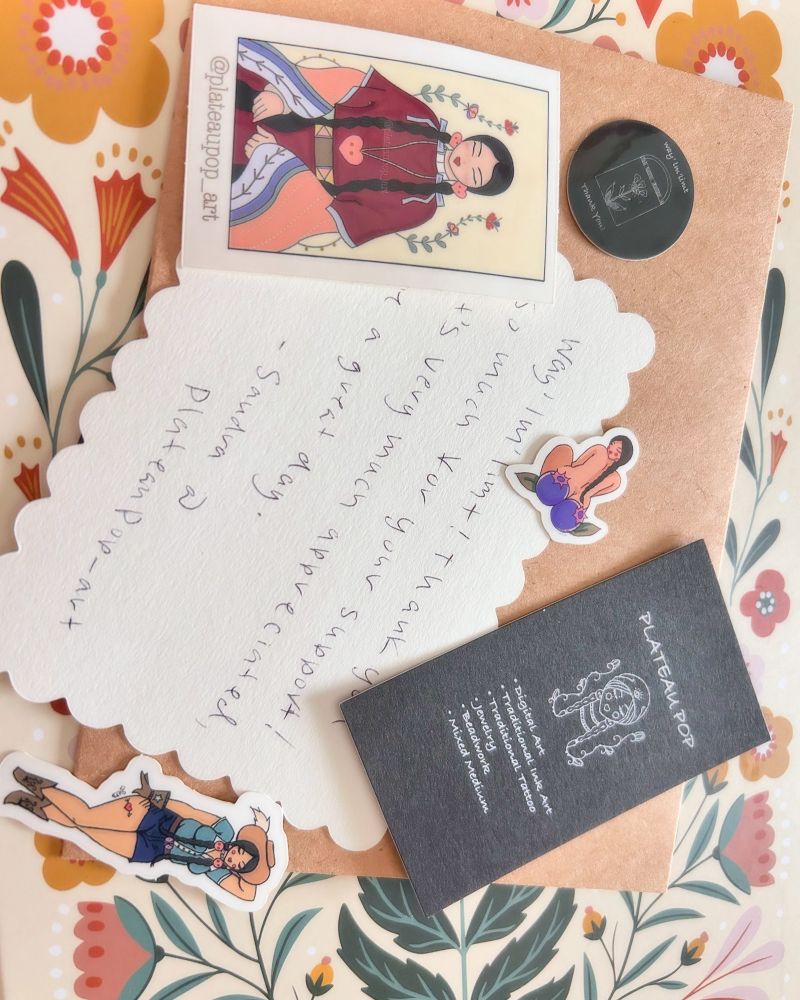 @plateaupop_art
way' lm'limt
Thank You!
Way' lm'limt! Thank
so much for your support!
It's very much appreciated,
a great day.
- Sandra @
Plateaupop-art
PLATEAU POP
• Digital Art
• Traditional Ink Art
• Traditional Tattoo
• Jewelry
• Beadwork
• Mixed Medium